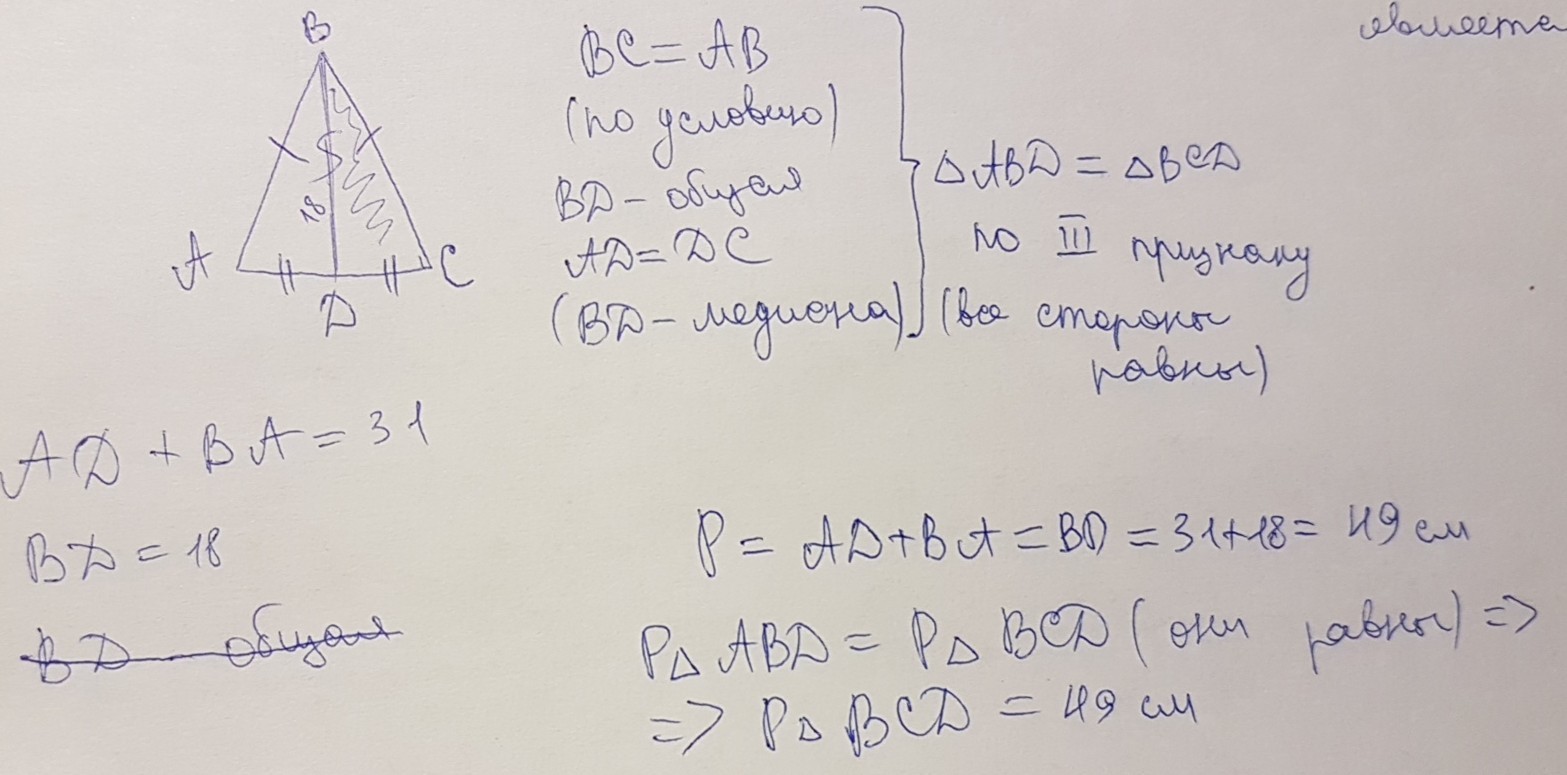 является
B
A
C
D
18
BC = AB
(по условию)
BD – общая
AD = DC
(BD – медиана)
△ABD = △BCD
по III признаку
(все стороны
равны)
AD + BA = 31
BD = 18
BD общая
P = AD + BA = BD = 31+18 = 49 см
P△ ABD = P△ BCD (они равны) =>
=> P△ BCD = 49 см